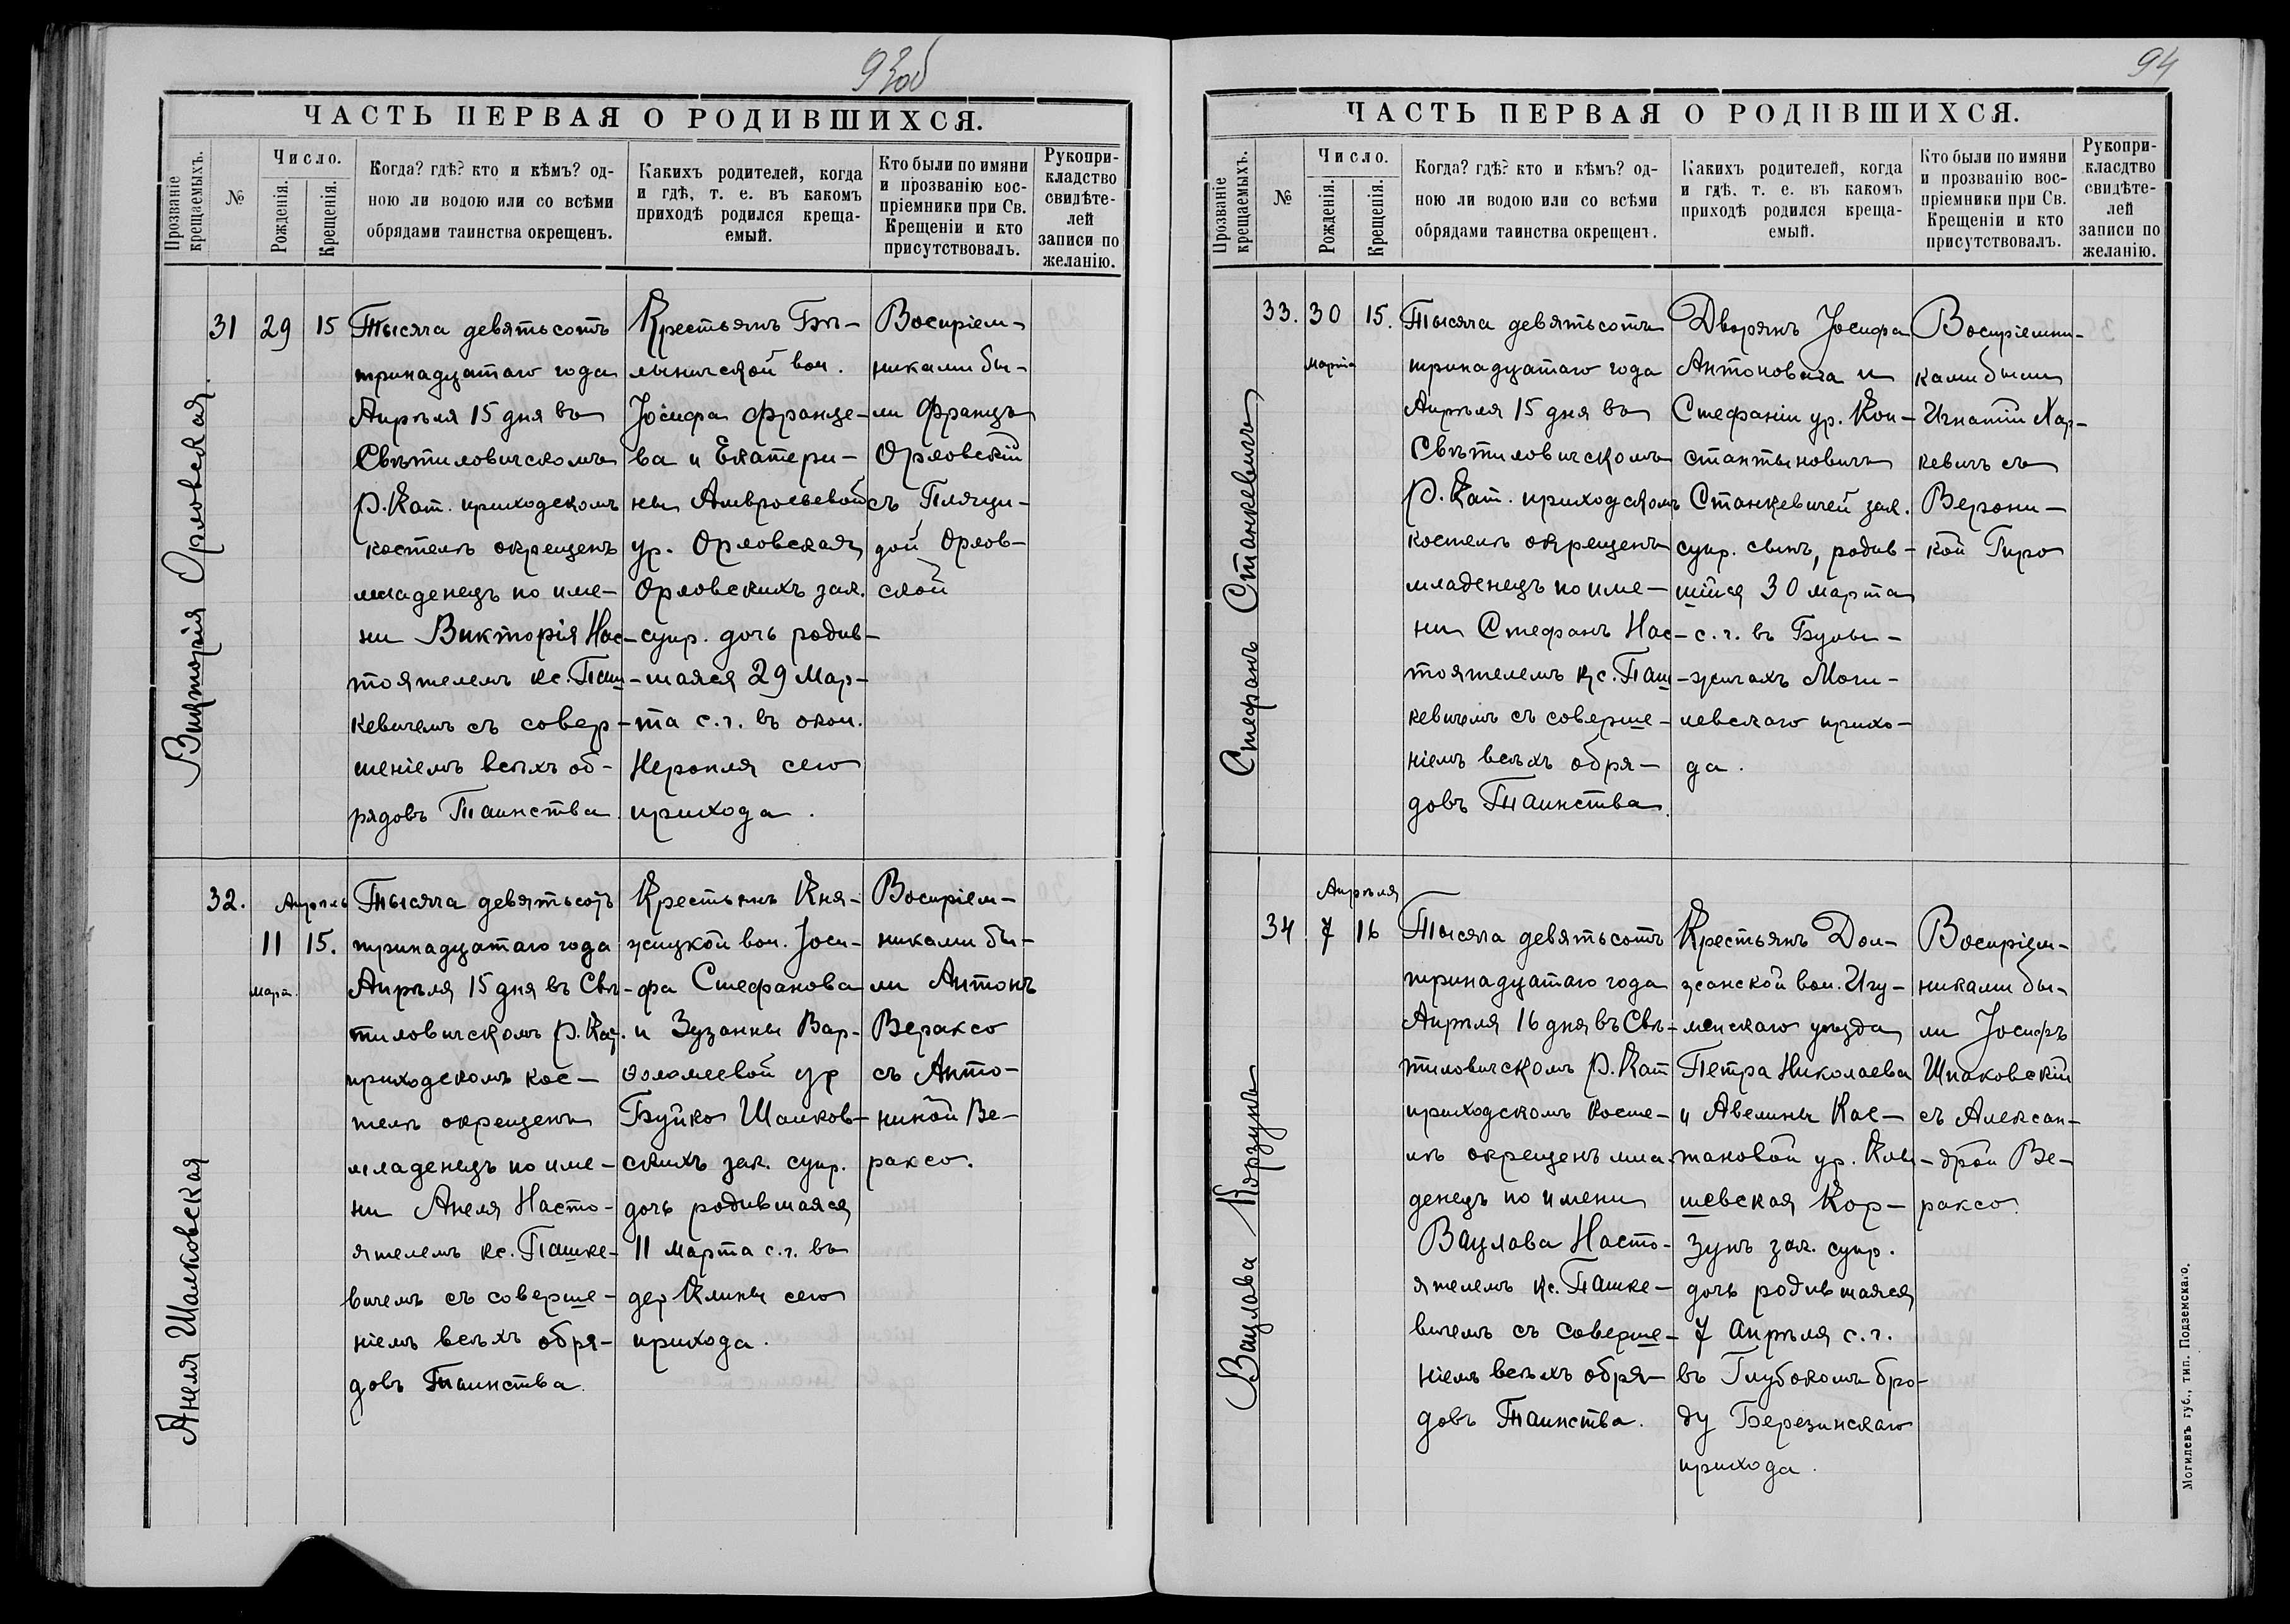 93об
ЧАСТЬ ПЕРВАЯ О РОДИВШИХСЯ.
Прозваніе крещаемыхъ.
№
Число.
Рожденія.
Крещенія.
Когда? гдѣ? кто и кѣмъ? од-
ною ли водою или со всѣми
обрядами таинства окрещенъ.
Какихъ родителей, когда
и гдѣ, т. е. въ какомъ
приходѣ родился креща-
емый.
Кто были по имяни
и прозванію вос-
пріемники при Св.
Крещеніи и кто
присутствовалъ.
Рукопри-
кладство
свидѣте-
лей
записи по
желанію.
Викторія Орловская.
31
29
15
Тысяча девятьсотъ
тринадцатаго года
Апрѣля 15 дня въ
Свѣтиловичскомъ
Р. Кат. приходскомъ
костелѣ окрещенъ
младенецъ по име-
ни Викторія Нас-
тоятелемъ кс. Паш-
кевичемъ съ совер-
шеніемъ всѣхъ об-
рядовъ Таинства.
Крестьянъ Бѣ-
лыничской вол.
Іосифа Францe-
ва и Екатери-
ны Амвросьевой
ур. Орловская
Орловскихъ зак.
супр. дочь родив-
шаяся 29 Мар-
та с. г. въ окол.
Неропля сего
прихода.
Воспріем-
никами бы-
ли Францъ
Орловскій
съ Пляци-
дой Орлов-
ской
Анеля Шалковская
32.
Апрѣль
11
15.
Мара.
Тысяча девятьсотъ
тринадцатаго года
Апрѣля 15 дня въ Свѣ-
тиловичскомъ Р. Кат.
приходскомъ кос-
телѣ окрещенъ
младенецъ по име-
ни Анеля Насто-
ятелемъ кс. Пашке-
вичемъ съ соверше-
ніемъ всѣхъ обря-
довъ Таинства.
Крестьянъ Кня-
жицкой вол. Іоси-
фа Стефанова
и Зузанны Вар-
ѳоломеевой ур
Буйко Шалков-
скихъ зак. супр.
дочь родившаяся
11 марта с. г. въ
дер Клины сего
прихода.
Воспріем-
никами бы-
ли Антонъ
Вераксо
съ Анто-
ниной Ве-
раксо.
94
ЧАСТЬ ПЕРВАЯ О РОДИВШИХСЯ.
Прозваніе крещаемыхъ.
№
Число.
Рожденія.
Крещенія.
Когда? гдѣ? кто и кѣмъ? од-
ною ли водою или со всѣми
обрядами таинства окрещенъ.
Какихъ родителей, когда
и гдѣ, т. е. въ какомъ
приходѣ родился креща-
емый.
Кто были по имяни
и прозванію вос-
пріемники при Св.
Крещеніи и кто
присутствовалъ.
Рукопри-
класдтво
свидѣте-
лей
записи по
желанію.
Стефанъ Станкевичъ
33.
30
15.
марта
Тысяча девятьсотъ
тринадцатаго года
Апрѣля 15 дня въ
Свѣтиловичскомъ
Р. Кат. приходскомъ
костелѣ окрещенъ
младенецъ по име-
ни Стефанъ Нас-
тоятелемъ кс. Паш-
кевичемъ съ соверше-
ніемъ всѣхъ обря-
довъ Таинства.
Дворянъ Іосифа
Антоновича и
Стефаніи ур. Кон-
стантыновичъ
Станкевичей зак.
супр. сынъ, родив-
шійся 30 марта
с. г. въ Булы-
жичахъ Моги-
левскаго прихо-
да.
Воспріемни-
ками были
Игнатій Хар-
кевичъ съ
Верони-
кой Гиро
Вацлава Корзунъ
34
Апрѣля
7
16
Тысяча девятьсотъ
тринадцатаго года
Апрѣля 16 дня въ Свѣ-
тиловичскомъ Р. Кат
приходскомъ косте-
лѣ окрещенъ мла-
денецъ по имени
Вацлава Насто-
ятелемъ кс. Пашке-
вичемъ съ соверше-
ніемъ всѣхъ обря-
довъ Таинства.
Крестьянъ Дол-
жанской вол. Игу-
менскаго уѣзда
Петра Николаева
и Авелины Кас-
тановой ур. Ков-
шевская Кор-
зунъ зак. супр.
дочь родившаяся
7 апрѣля с. г.
въ Глубокомъ бро-
ду Березинскаго
прихода.
Воспріем-
никами бы-
ли Іосифъ
Шпаковскій
съ Алексан-
дрой Ве-
раксо.
Могилевъ губ., тип. Подземскаго.